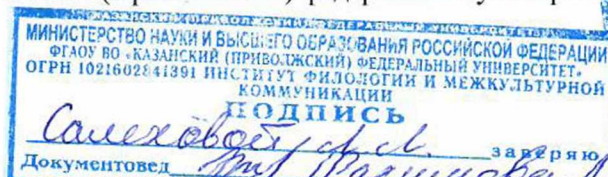 МИНИСТЕРСТВО НАУКИ И ВЫСШЕГО ОБРАЗОВАНИЯ РОССИЙСКОЙ ФЕДЕРАЦИИ
ФГАОУ ВО «КАЗАНСКИЙ (ПРИВОЛЖСКИЙ) ФЕДЕРАЛЬНЫЙ УНИВЕРСИТЕТ»
ОГРН 1021602841391 ИНСТИТУТ ФИЛОЛОГИИ И МЕЖКУЛЬТУРНОЙ
КОММУНИКАЦИИ
ПОДПИСЬ
Салеховой Л.Л. заверяю
Документовед